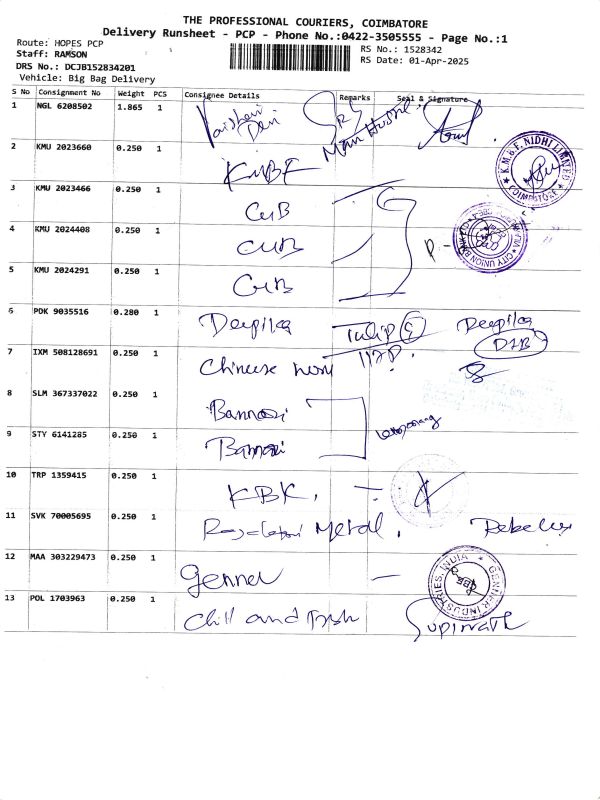 THE PROFESSIONAL COURIERS, COIMBATORE
Delivery Runsheet - PCP - Phone No.:0422-3505555 - Page No.:1
Route: HOPES PCP
Staff: RAMSON
DRS No.: DCJB152834201
Vehicle: Big Bag Delivery
RS No.: 1528342
RS Date: 01-Apr-2025
S No Consignment No Weight PCS Consignee Details Remarks Seal & Signature
1 NGL 6208502 1.865 1 Vaishnavi Devi
2 KMU 2023660 0.250 1 KMBF
K.M.B.F. NIDHI LIMITED COIMBATORE
3 KMU 2023466 0.250 1 CUB
4 KMU 2024408 0.250 1 CUB
CITY UNION BANK
5 KMU 2024291 0.250 1 CUB
6 PDK 9035516 0.280 1 Deepika Tulip Deepika
7 IXM 508128691 0.250 1 Chinese
8 SLM 367337022 0.250 1 Bannari
9 STY 6141285 0.250 1 Bannari
10 TRP 1359415 0.250 1 KBK. -
11 SVK 70005695 0.250 1 Metal.
12 MAA 303229473 0.250 1 Genner -
GENNER INDUSTRIES, INDIA
13 POL 1703963 0.250 1 Chill and Fish